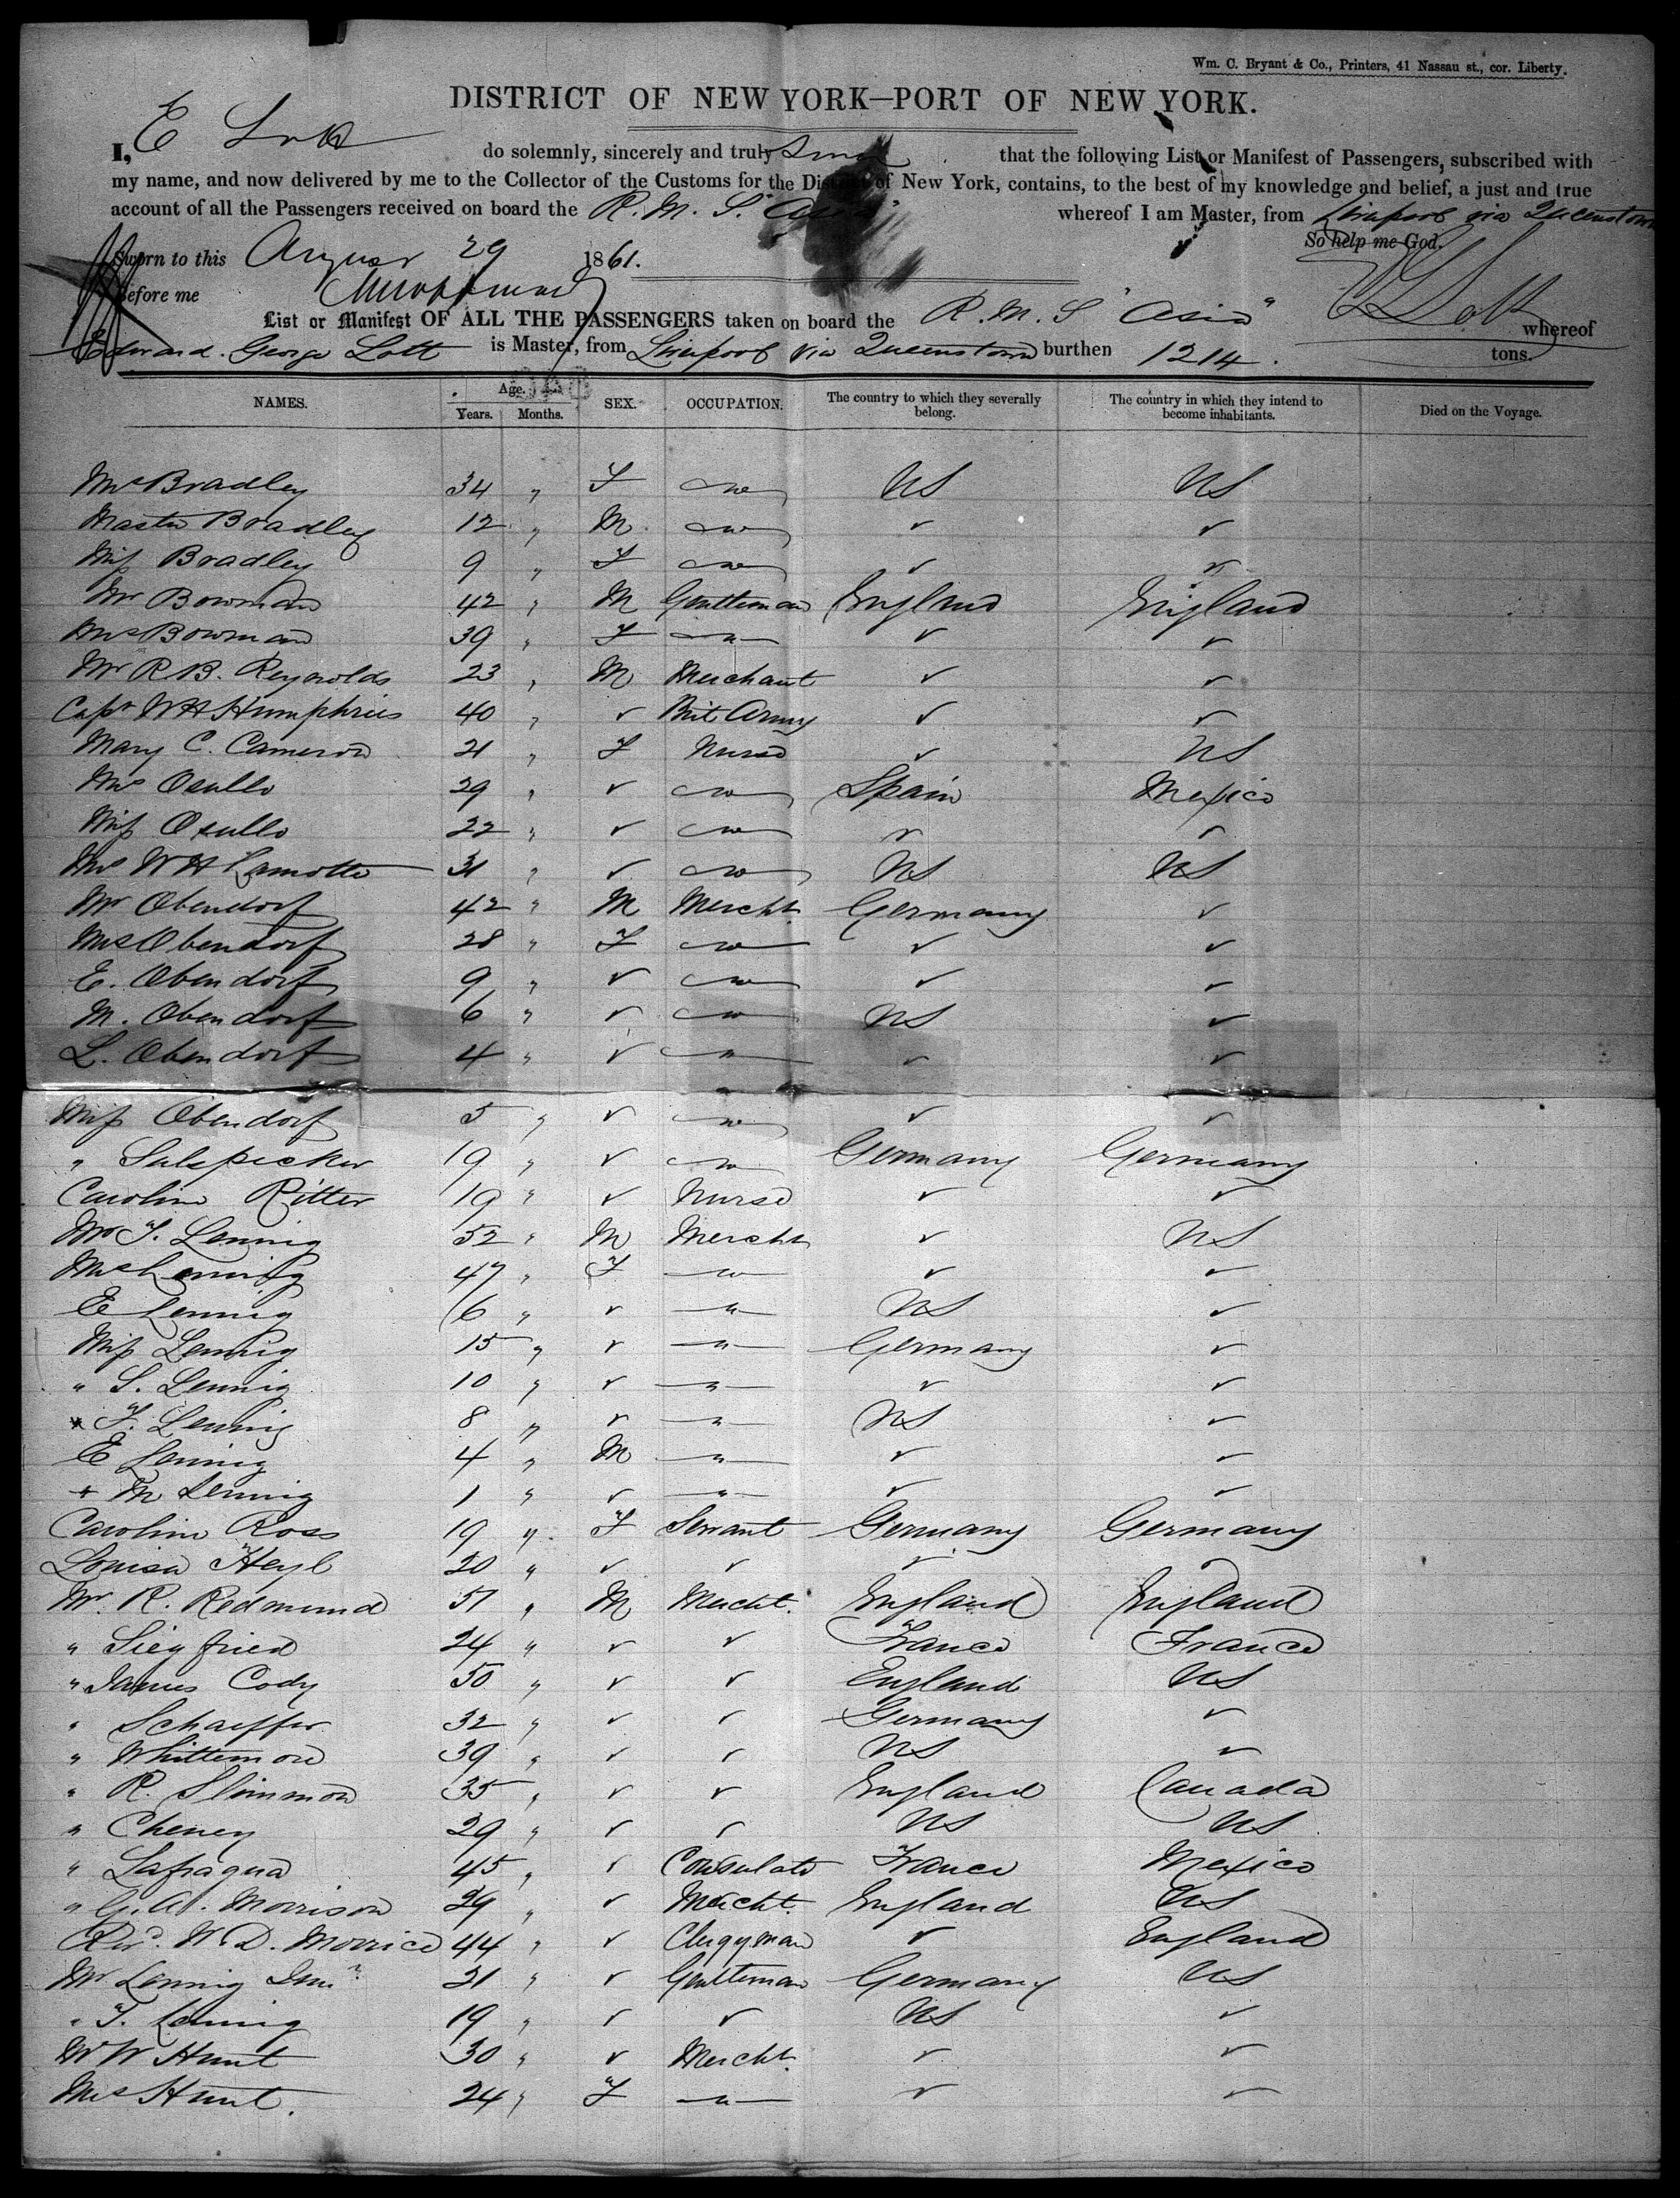 Wm. C. Bryant & Co., Printers, 41 Nassau st., cor. Liberty.
DISTRICT OF NEW YORK—PORT OF NEW YORK.
I, E Lott do solemnly, sincerely and truly Swear that the following List or Manifest of Passengers, subscribed with
my name, and now delivered by me to the Collector of the Customs for the District of New York, contains, to the best of my knowledge and belief, a just and true
account of all the Passengers received on board the R. M. S. "Asia" whereof I am Master, from Liverpool via Queenstown
So help me God.
Sworn to this August 29 1861.
Before me
E G Lott
List or Manifest OF ALL THE PASSENGERS taken on board the R. M. S "Asia" whereof
Edward George Lott is Master, from Liverpool via Queenstown burthen 1214. tons.
NAMES. Age. Years. Months. SEX. OCCUPATION. The country to which they severally belong. The country in which they intend to become inhabitants. Died on the Voyage.
Mrs Bradley 34 " F " US US
Master Bradley 12 " M " ✓ ✓
Miss Bradley 9 " F " ✓ ✓
Mr Bowman 42 " M Gentleman England England
Mrs Bowman 39 " F " ✓ ✓
Mr R B. Reynolds 23 " M Merchant ✓ ✓
Captn W H Humphries 40 " ✓ Brit Army ✓ ✓
Mary C. Cameron 21 " F Nurse ✓ US
Mrs 29 " ✓ " Spain Mexico
Miss 22 " ✓ " ✓ ✓
Mrs W H Lamotte 31 " ✓ " US US
Mr Obendorf 42 " M Mercht. Germany ✓
Mrs Obendorf 28 " F " ✓ ✓
E. Obendorf 9 " ✓ " ✓ ✓
M. Obendorf 6 " ✓ " US ✓
L. Obendorf 4 " ✓ " ✓ ✓
Miss Obendorf 5 " ✓ " ✓ ✓
" Sulspicker 19 " ✓ " Germany Germany
Caroline Ritter 19 " ✓ Nurse ✓ ✓
Mr F. Lennig 52 " M Mercht ✓ US
Mrs Lennig 47 " F " ✓ ✓
E Lennig 16 " ✓ " US ✓
Miss Lennig 15 " ✓ " Germany ✓
" S. Lennig 10 " ✓ " ✓ ✓
" F. Lennig 8 " ✓ " US ✓
E Lennig 4 " M " ✓ ✓
" M Lennig 1 " ✓ " ✓ ✓
Caroline Ross 19 " F Servant Germany Germany
Louisa Heyl 20 " ✓ ✓ ✓ ✓
Mr. R. Redmund 51 " M Mercht. England England
" Siegfried 24 " ✓ ✓ France France
" James Cody 50 " ✓ ✓ England US
" Schaeffer 32 " ✓ ✓ Germany ✓
" Whittemore 39 " ✓ ✓ US ✓
" R. Slimmon 35 " ✓ ✓ England Canada
" Cheney 29 " ✓ ✓ US US
" Lafragua 45 " ✓ Consulate France Mexico
" G. A. Morrison 29 " ✓ Mercht. England US
Revd. W. D. Morrice 44 " ✓ Clergyman ✓ England
Mr Lennig Junr. 21 " ✓ Gentleman Germany US
" F. Lennig 19 " ✓ ✓ US ✓
W W Hunt 30 " ✓ Mercht. ✓ ✓
Mrs Hunt. 24 " F " ✓ ✓